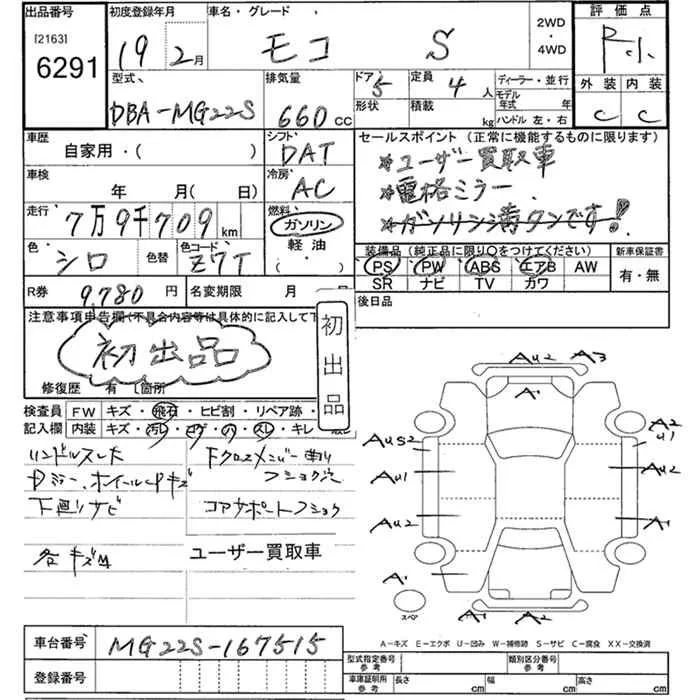 出品番号
[2163]
6291
初度登録年月
19 2月
車名・グレード
モコ S
2WD
・
4WD
評価点
R小
外装 内装
C C
型式
DBA-MG22S
排気量
660 CC
ドア 5
形状
定員 4 人
積載 kg
ディーラー・並行
モデル年式 年
ハンドル 左・右
車歴
自家用・( )
シフト
DAT
車検
年 月( 日)
冷房
AC
走行
7万9千709 km
燃料
ガソリン
軽油
( )
色 シロ
色替
色コード Z7T
R券 9,780 円
名変期限 月
セールスポイント(正常に機能するものに限ります)
※ユーザー買取車
※電格ミラー
※ガソリン満タンです!
装備品(純正品に限り○をつけてください)
PS PW ABS エアB AW
SR ナビ TV カワ
新車保証書
有・無
後日品
注意事項申告欄(不具合内容等は具体的に記入して下
初出品
初出品
修復歴 有 [箇所
検査員 FW キズ・飛石・ヒビ割・リペア跡・
記入欄 内装 キズ・汚レ・コゲ・穴・スレ・キレ
ハンドルスレ大
下廻りサビ
各キズ凹
コアサポートフショク
ユーザー買取車
AU2 A3
A1
AUS2
AU1
AU2
A2
U1
AU2
A1
A1
A1 A2
スペア
A-キズ E-エクボ U-凹み W-補修跡 S-サビ C-腐食 XX-交換済
車台番号 MG22S-167515
登録番号
型式指定番号 参考
類別区分番号 参考
車庫証明用 参考
長さ cm 幅 cm 高さ cm